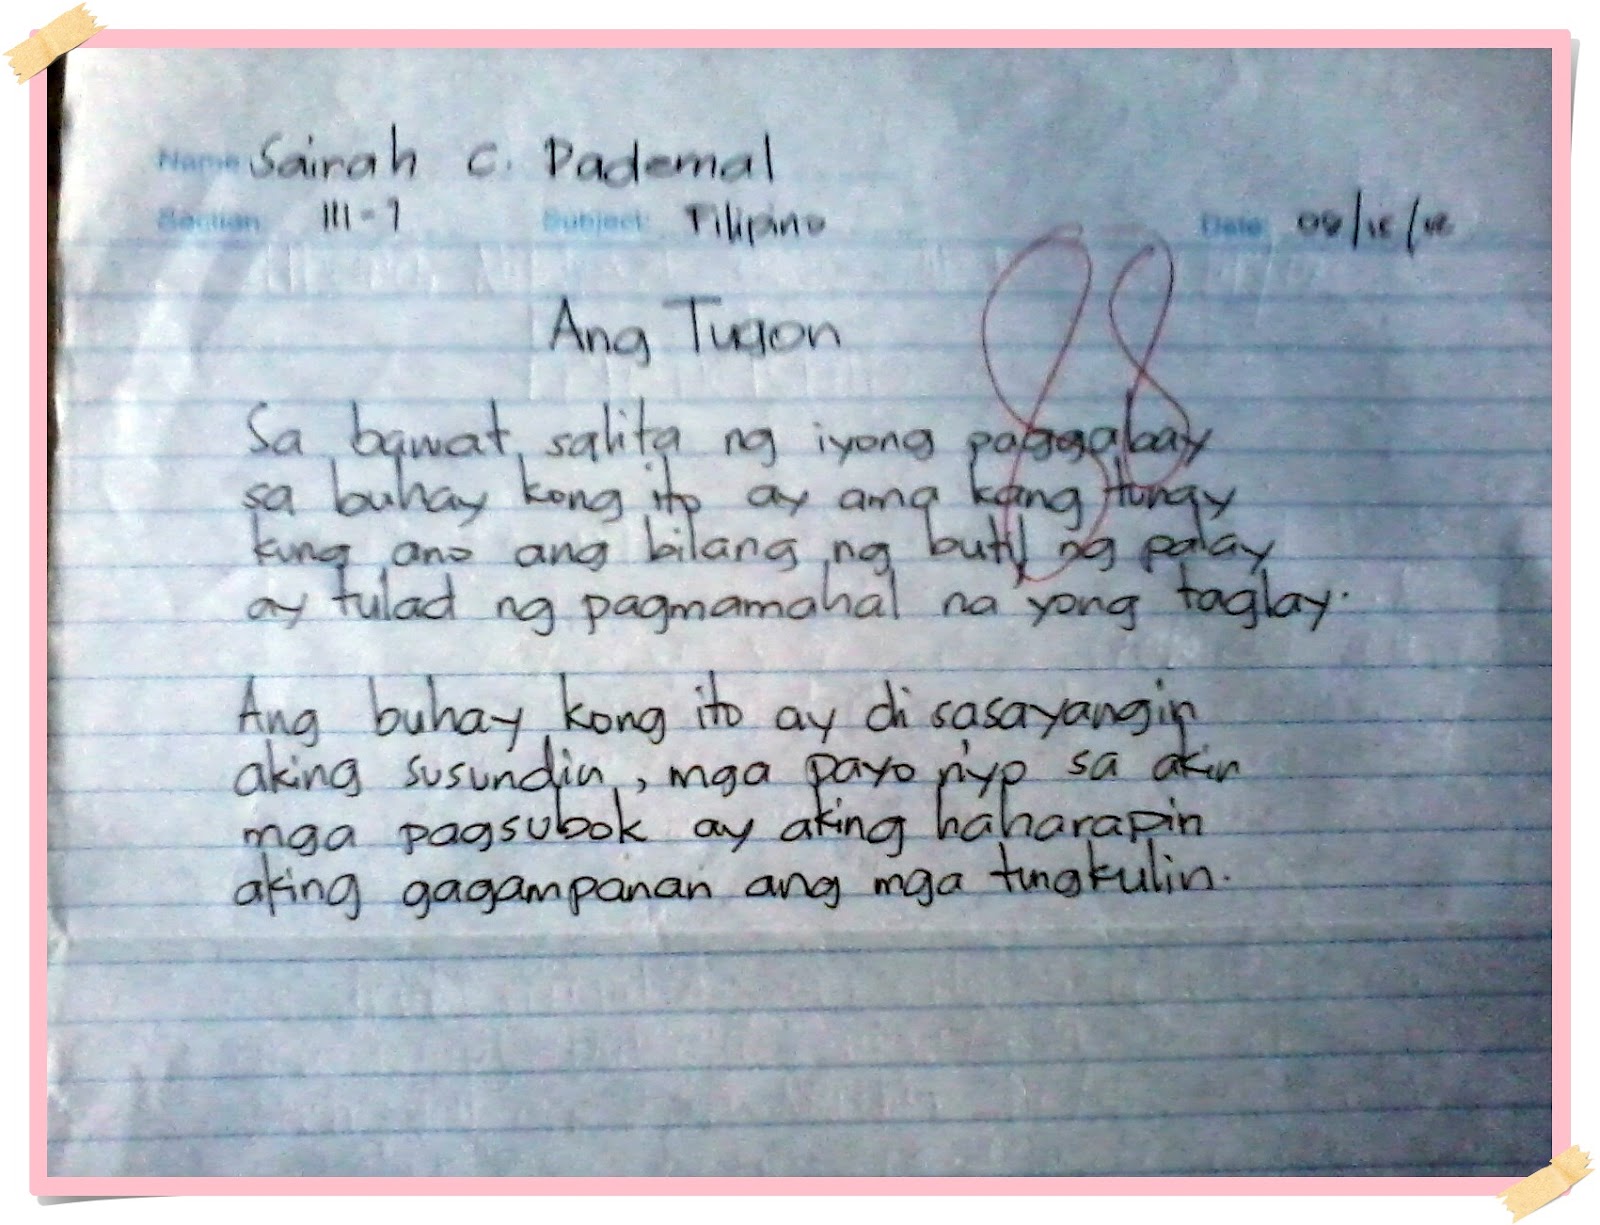 Name: Sairah C. Pademal
Section: III-7 Subject: Filipino Date: 08/15/12
88
Ang Tugon
Sa bawat salita ng iyong paggabay
sa buhay kong ito ay ama kang tunay
kung ano ang bilang ng butil ng palay
ay tulad ng pagmamahal na yong taglay.
Ang buhay kong ito ay di sasayangin
aking susundin, mga payo n'yo sa akin
mga pagsubok ay aking haharapin
aking gagampanan ang mga tungkulin.